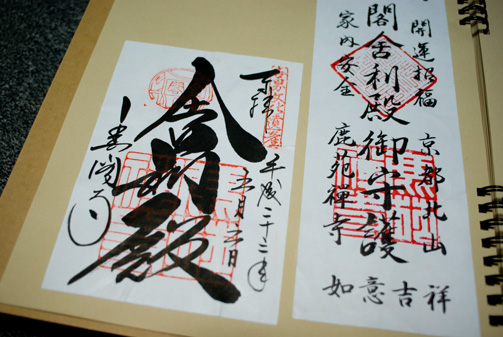 開運招福 京都北山
閣舎利殿御守護
家内安全 鹿苑禪寺
如意吉祥
奉拝
平成二十二年
五月
舎利殿
金閣寺